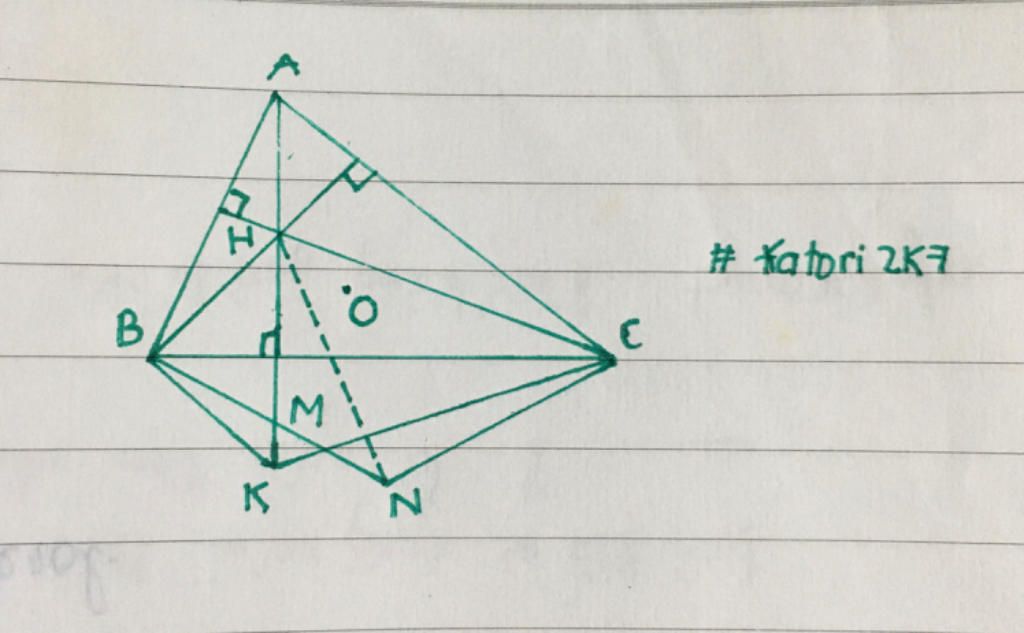 A
H
# Katori 2K7
O
B
C
M
K
N